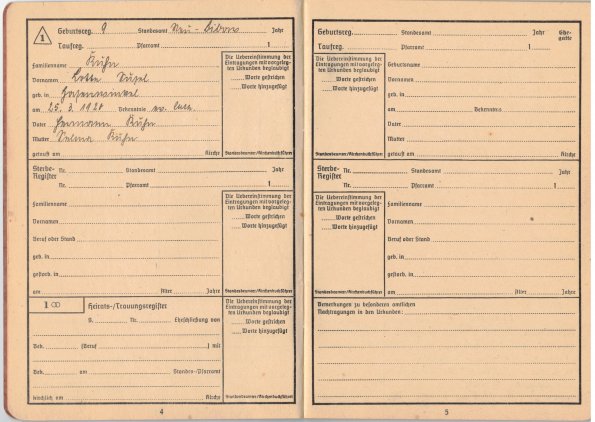 1
Geburtsreg. 9 Standesamt Neu- Jahr
Taufreg. Pfarramt 1
Familienname Kuhn
Vornamen Lotte
geb. in
am 25. 3. 1920 Bekenntnis ev. luth.
Vater Hermann Kuhn
Mutter Selma Kuhn
getauft am Kirche
Die Uebereinstimmung der
Eintragungen mit vorgeleg-
ten Urkunden beglaubigt
Worte gestrichen
Worte hinzugefügt
Standesbeamter/Kirchenbuchführer
Sterbe- Nr. Standesamt Jahr
Register Nr. Pfarramt 1
Familienname
Vornamen
Beruf oder Stand
geb. in
gestorb. in
am Alter Jahre
Die Uebereinstimmung der
Eintragungen mit vorgeleg-
ten Urkunden beglaubigt
Worte gestrichen
Worte hinzugefügt
Standesbeamter/Kirchenbuchführer
1 Heirats-/Trauungsregister
B. Nr. Eheschließung von
Geb. (Beruf ) mit
Geb. am Standes-/Pfarramt
kirchlich am Kirche
Die Uebereinstimmung der
Eintragungen mit vorgeleg-
ten Urkunden beglaubigt
Worte gestrichen
Worte hinzugefügt
Standesbeamter/Kirchenbuchführer
4
Geburtsreg. Standesamt Jahr
Taufreg. Pfarramt 1
Ehe-
gatte
Die Uebereinstimmung der
Eintragungen mit vorgeleg-
ten Urkunden beglaubigt
Worte gestrichen
Worte hinzugefügt
Standesbeamter/Kirchenbuchführer
Geburtsname
Vornamen
geb. in
am Bekenntn.
Vater
Mutter
getauft am Kirche
Sterbe- Nr. Standesamt Jahr
Register Nr. Pfarramt 1
Die Uebereinstimmung der
Eintragungen mit vorgeleg-
ten Urkunden beglaubigt
Worte gestrichen
Worte hinzugefügt
Standesbeamter/Kirchenbuchführer
Familienname
Vornamen
Beruf oder Stand
geb. in
gestorb. in
am Alter Jahre
Bemerkungen zu besonderen amtlichen
Nachtragungen in den Urkunden:
5